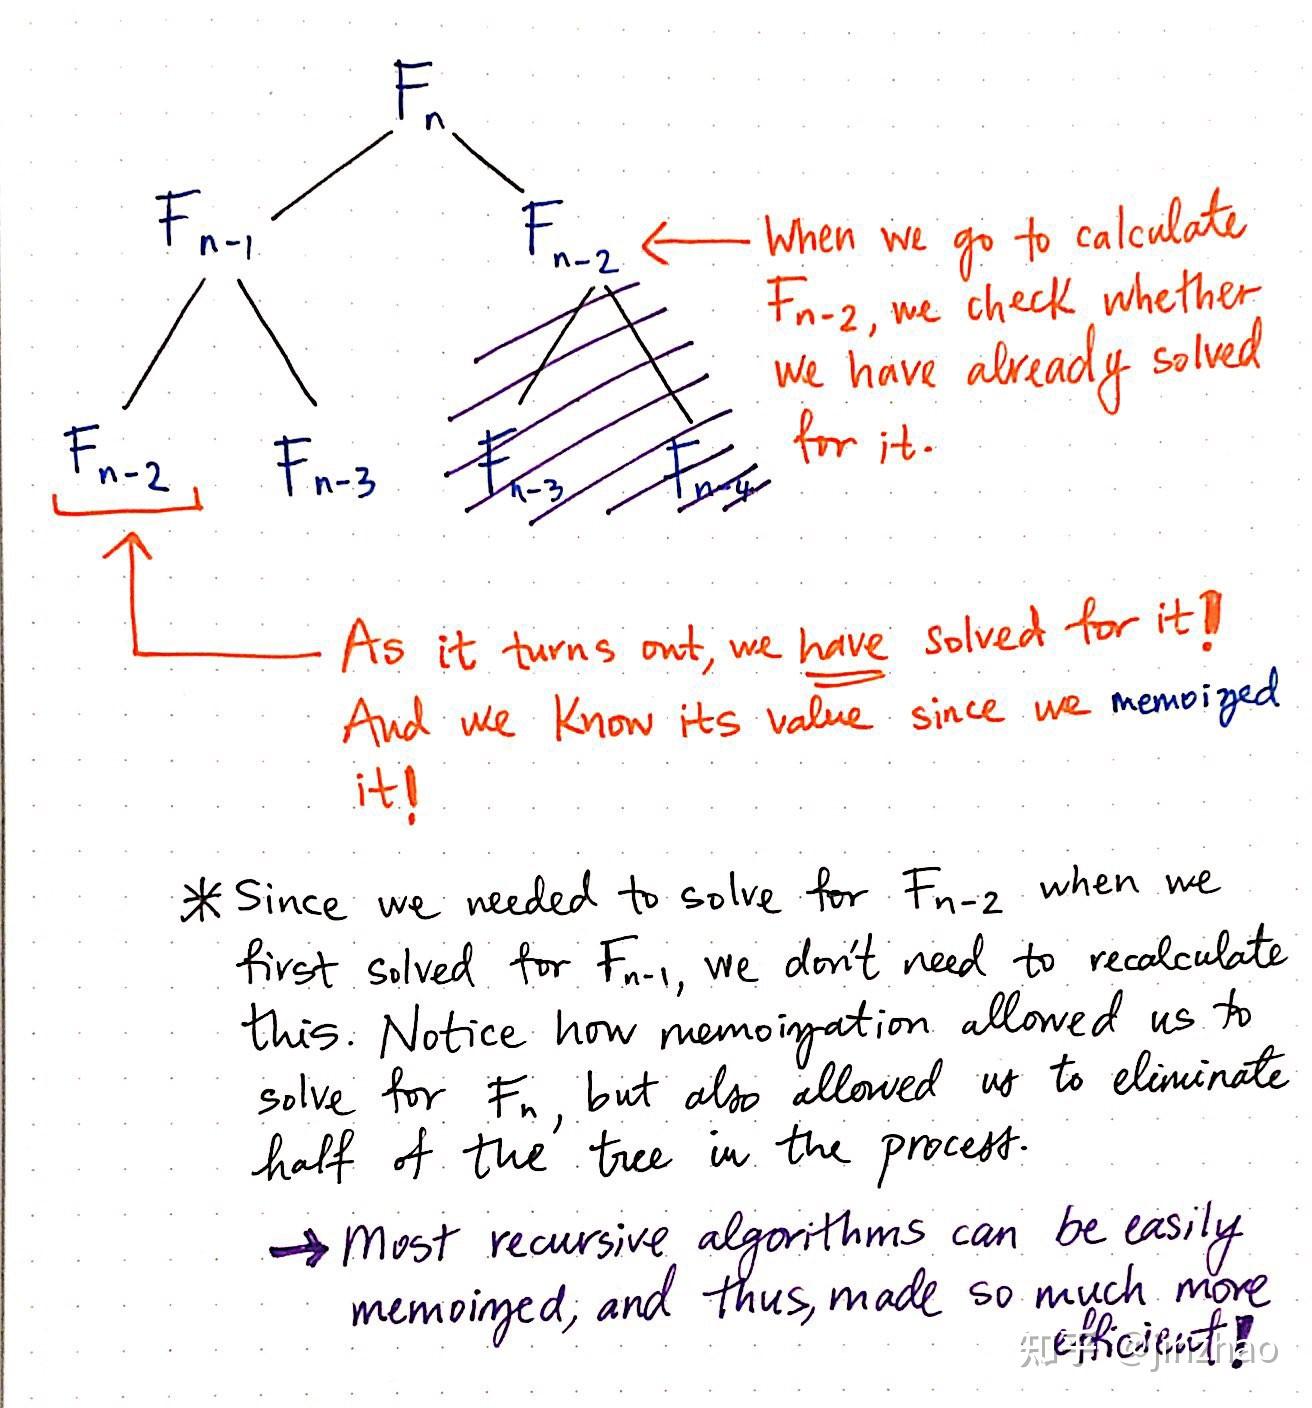 Fn
Fn-1
Fn-2
When we go to calculate
Fn-2, we check whether
we have already solved
for it.
Fn-2
Fn-3
Fn-3
Fn-4
As it turns out, we have solved for it!
And we know its value since we memoized
it!
* Since we needed to solve for Fn-2 when we
first solved for Fn-1, we don't need to recalculate
this. Notice how memoization allowed us to
solve for Fn, but also allowed us to eliminate
half of the tree in the process.
→ Most recursive algorithms can be easily
memoized, and thus, made so much more
efficient!
知乎 @jinzhao